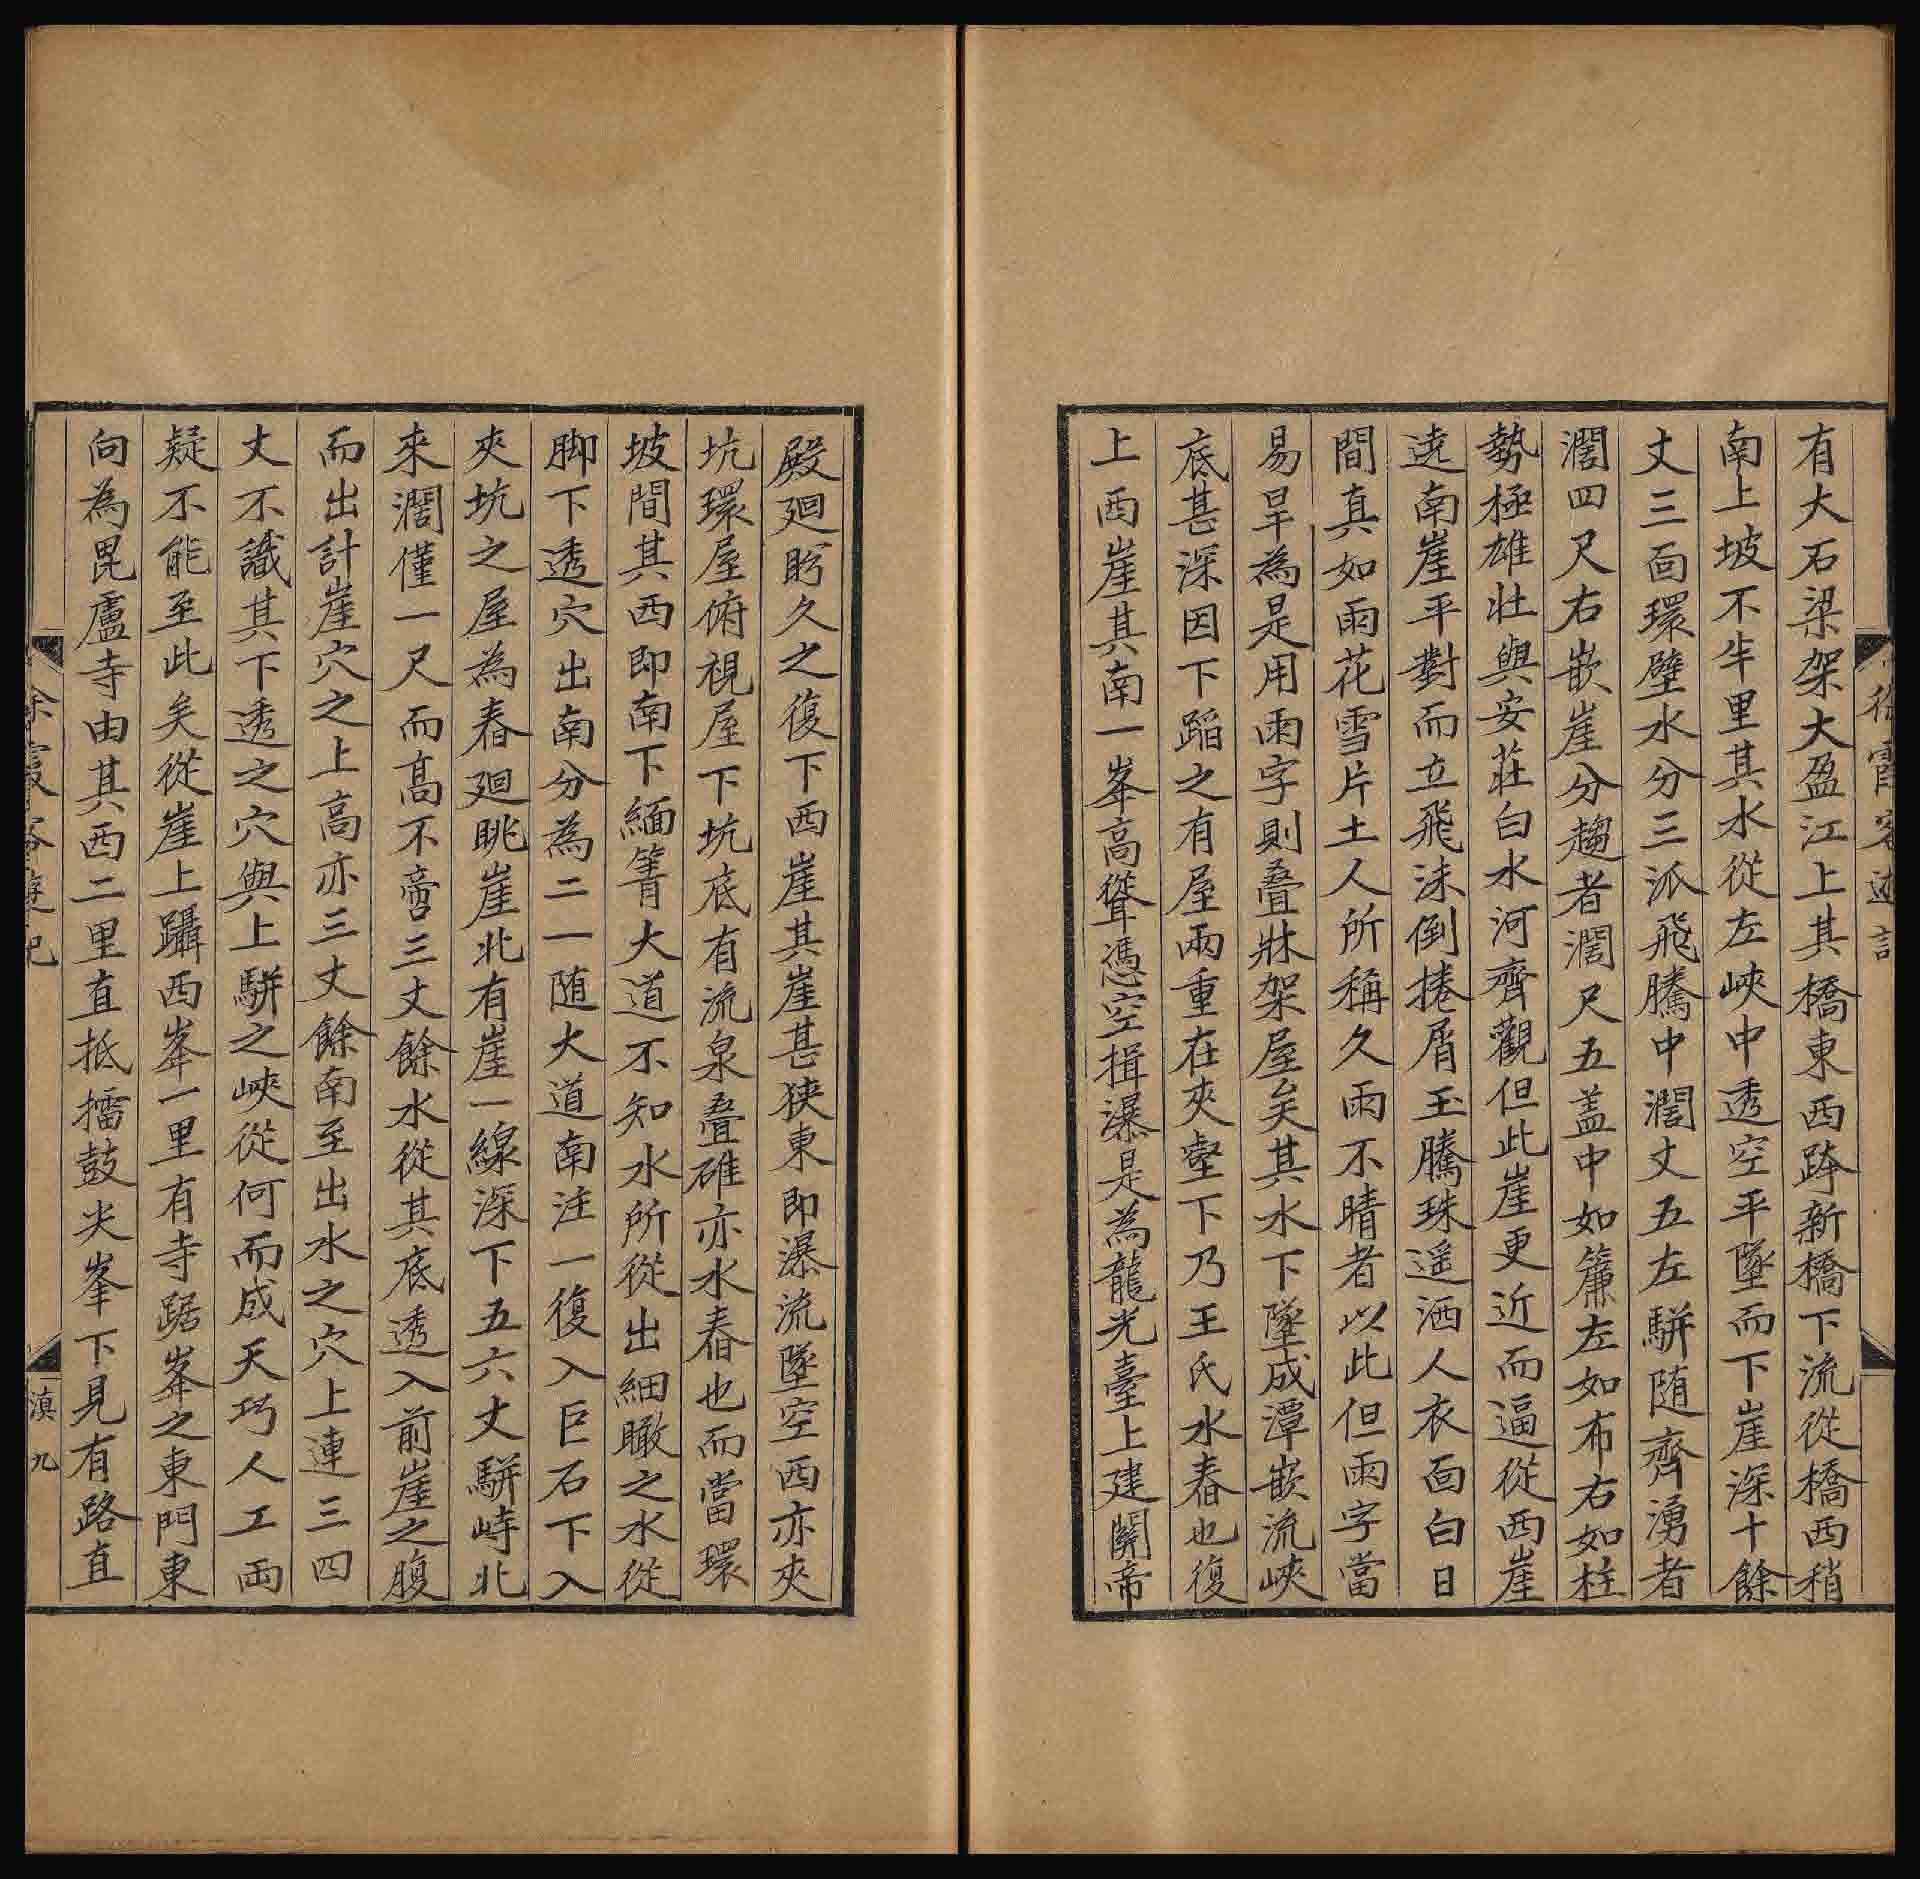 有大石梁架大盈江上其橋東西跨新橋下流從橋西稍
南上坡不半里其水從左峽中透空平墜而下崖深十餘
丈三面環壁水分三派飛騰中濶丈五左駢随齊湧者
濶四尺右嵌崖分趨者濶尺五盖中如簾左如布右如柱
勢極雄壯與安莊白水河齊觀但此崖更近而逼從西崖
遶南崖平對而立飛沫倒捲屑玉騰珠遥洒人衣面白日
間真如雨花雪片土人所稱久雨不晴者以此但雨字當
易旱為是用雨字則叠牀架屋矣其水下墜成潭嵌流峽
底甚深因下蹈之有屋兩重在夾壑下乃王氏水舂也復
上西崖其南一峯高聳憑空揖瀑是為龍光臺上建關帝
殿廻盻久之復下西崖其崖甚狹東即瀑流墜空西亦夾
坑環屋俯視屋下坑底有流泉叠碓亦水舂也而當環
坡間其西即南下緬箐大道不知水所從出細瞰之水從
脚下透穴出南分為二一随大道南注一復入巨石下入
夾坑之屋為舂廻眺崖北有崖一線深下五六丈駢峙北
來濶僅一尺而高不啻三丈餘水從其底透入前崖之腹
而出計崖穴之上高亦三丈餘南至出水之穴上連三四
丈不識其下透之穴與上駢之峽從何而成天巧人工兩
疑不能至此矣從崖上躡西峯一里有寺踞峯之東門東
向為毘盧寺由其西二里直抵擂鼓尖峯下見有路直
徐霞客遊記
滇九